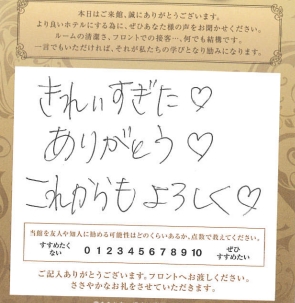 本日はご来館、誠にありがとうございます。
より良いホテルにする為に、ぜひあなた様の声をお聞かせください。
ルームの清潔さ、フロントでの接客…、何でも結構です。
一言でもいただければ、それが私たちの学びとなり励みになります。
きれいすぎた♡
ありがとう♡
これからもよろしく♡
当館を友人や知人に勧める可能性はどのくらいあるか、点数で教えてください。
すすめたくない 0 1 2 3 4 5 6 7 8 9 10 ぜひすすめたい
ご記入ありがとうございます。フロントへお渡しください。
ささやかなお礼をさせていただきます。